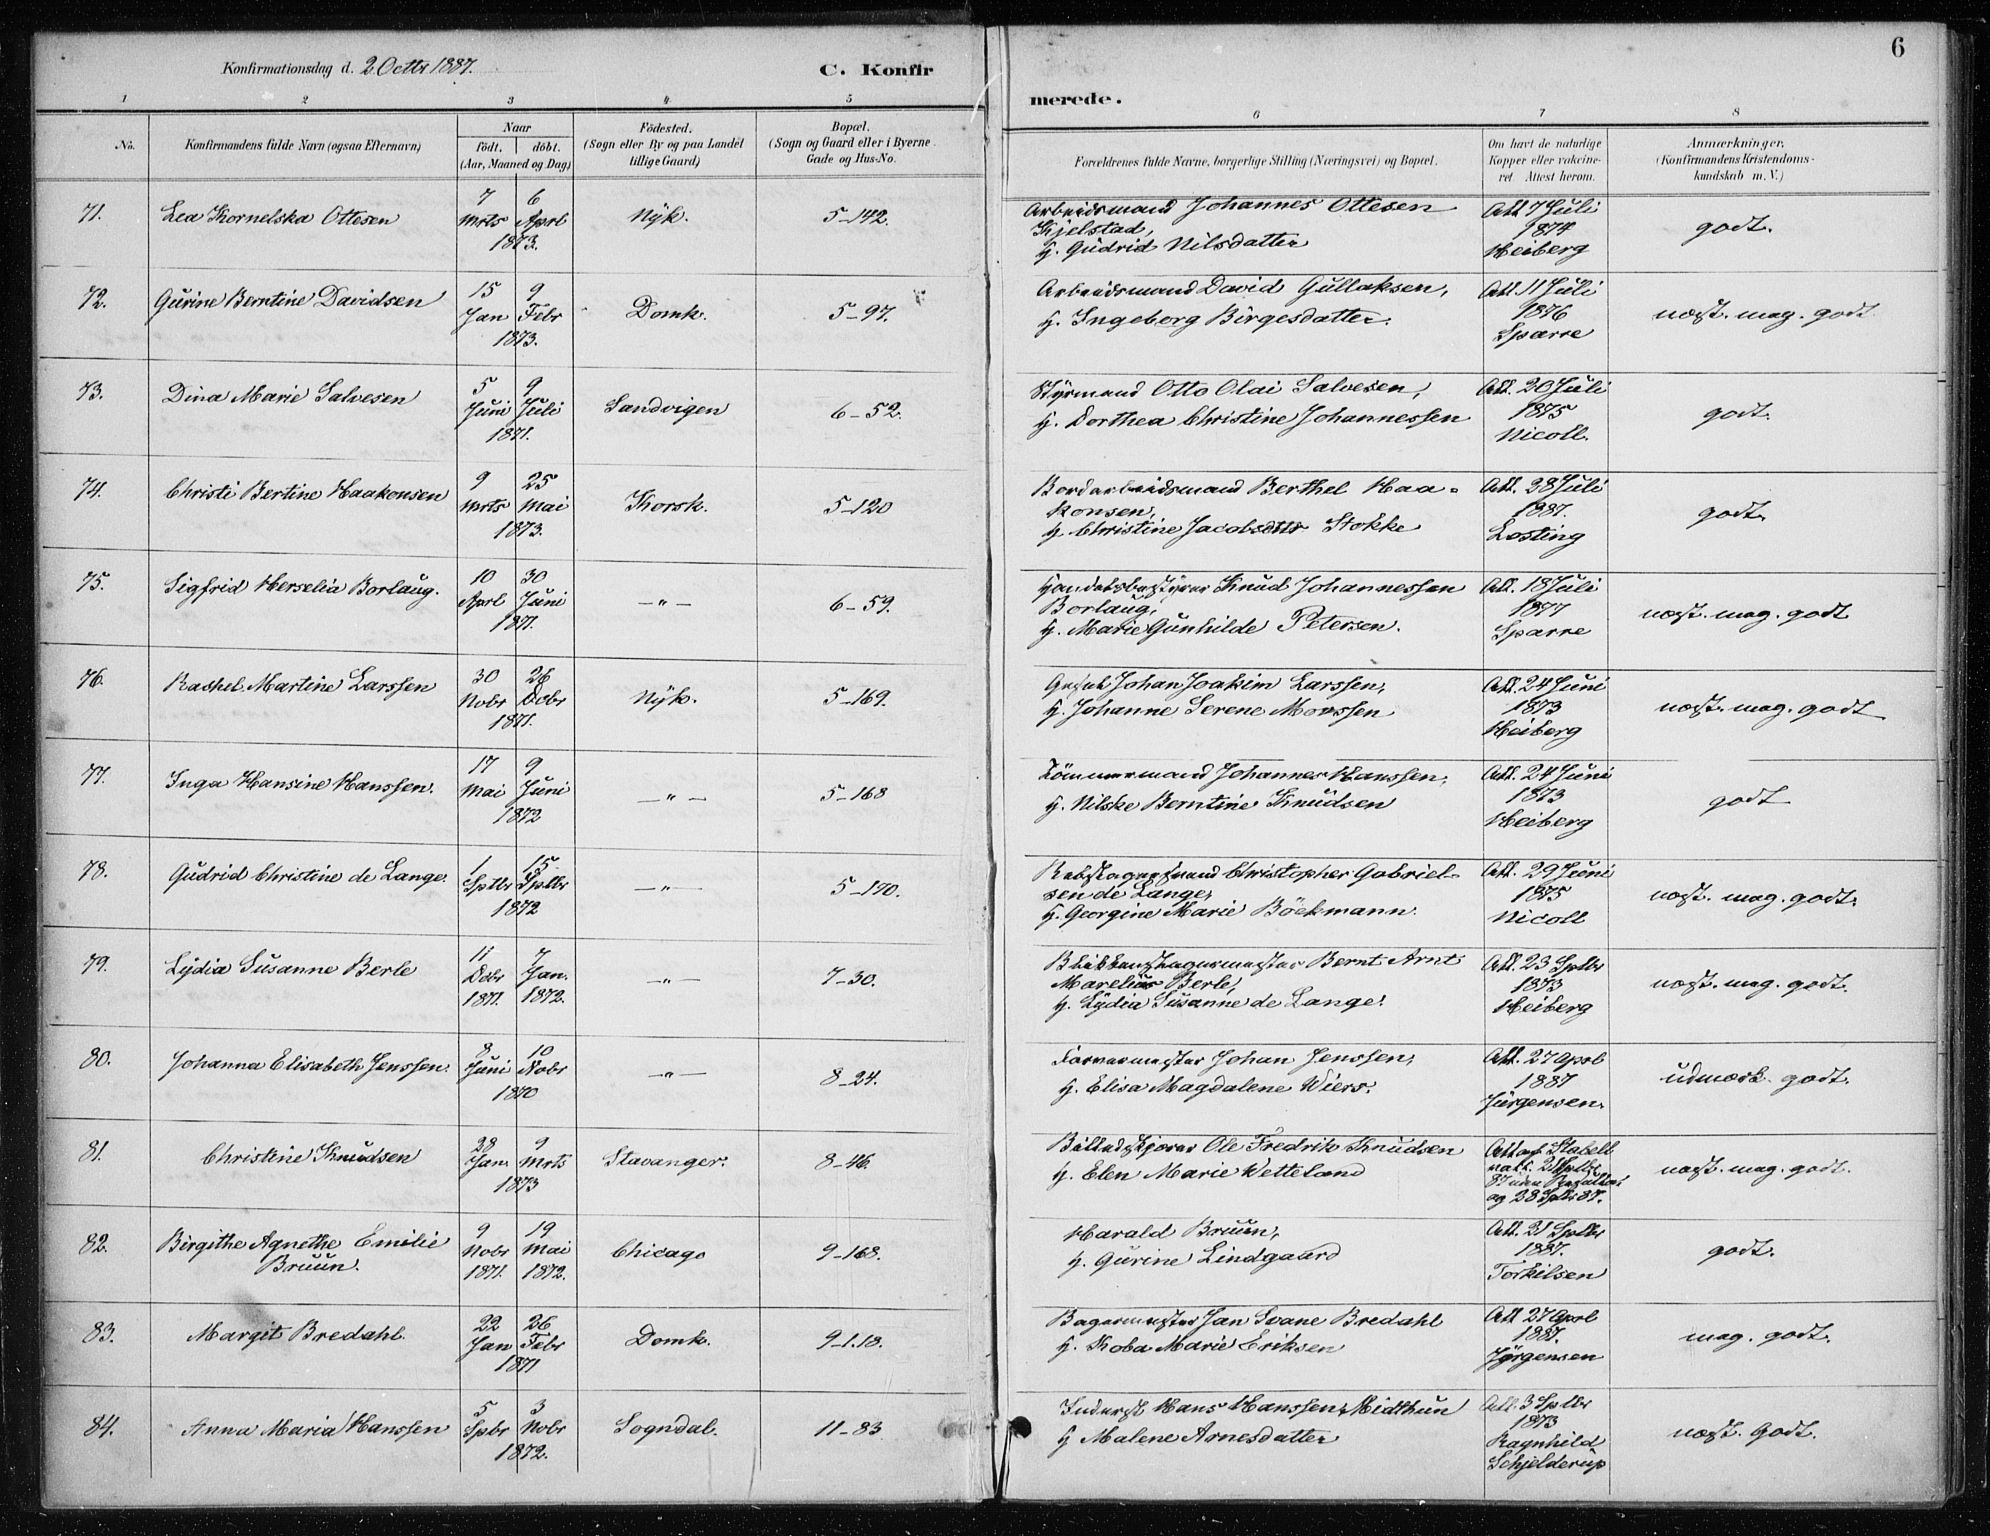 6
Konfirmationsdag d. 2 Octbr 1887.
C. Konfirmerede.
1 2 3 4 5 6 7 8
No.
Konfirmandens fulde Navn (ogsaa Efternavn)
Naar
födt. döbt.
(Aar, Maaned og Dag)
Födested.
(Sogn eller By og paa Landet
tillige Gaard)
Bopæl.
(Sogn og Gaard eller i Byerne
Gade og Hus-No.
Forældrenes fulde Navne, borgerlige Stilling (Næringsvei) og Bopæl.
Om havt de naturlige
Kopper eller vakcine-
ret. Attest herom.
Anmærkninger.
(Konfirmandens Kristendoms-
kundskab m. V.)
71. Lea Kornelska Ottesen
7 Mrts 6 Aprl
1873.
Nyk.
5-142.
Arbeidsmand Johannes Ottesen
Kjelstad,
H. Gudrid Nilsdatter
Att 7 Juli
1874
Heiberg
godt.
72. Gurine Berntine Davidsen
15 Jan 9 Febr
1873.
Domk.
5-97.
Arbeidsmand David Gullaksen,
H. Ingeborg Birgesdatter.
Att. 11 Juli
1876
Sparre
næst. mag. godt
73. Dina Marie Salvesen
5 Juni 9 Juli
1871.
Sandvigen
6-52.
Styrmand Otto Olai Salvesen,
H. Dorthea Christine Johannessen
Att. 20 Juli
1875
Nicoll.
godt.
74. Christi Bertine Haakonsen
9 Mrts 25 Mai
1873.
Korsk.
5-120
Bordarbeidsmand Berthel Haa-
konsen,
H. Christine Jacobsdttr Stokke
Att. 28 Juli
1887.
Losting
godt.
75. Sigfrid Herselia Borlaug.
10 Aprl 30 Juni
1871.
-"-
6-59.
Handelsbestyrer Knud Johannessen
Borlaug,
H. Marie Gunhilde Petersen.
Att. 18 Juli
1877
Sparre
næst. mag. godt
76. Rashel Martine Larssen
30 Nobr 26 Debr
1871.
Nyk.
5-169.
Johan Joakim Larssen,
H. Johanne Serene Monssen
Att. 24 Juni
1873
Heiberg
næst. mag. godt
77. Inga Hansine Hanssen.
17 Mai 9 Juni
1872
-"-
5-168
Tömmermand Johannes Hanssen,
H. Nilske Berntine Knudsen
Att. 24 Juni
1873
Heiberg
godt
78. Gudrid Christine de Lange.
1 Sptbr 15 Sptbr
1872
-"-
5-170.
Rebslagersvend Christopher Gabriel-
sen de Lange,
H. Georgine Marie Böckmann.
Att. 29 Juni
1875
Nicoll
næst. mag. godt.
79. Lydia Susanne Berle
11 Debr 7 Jan.
1871. 1872.
-"-
7-30.
Blikkenslagermester Bernt Arnt
Marelius Berle,
H. Lydia Susanne de Lange.
Att. 23 Sptbr
1873
Heiberg
næst. mag. godt.
80. Johanna Elisabeth Jenssen.
8 Juni 10 Nobr
1870
-"-
8-24.
Farvermester Johan Jenssen,
H. Elisa Magdalene Wiers.
Att. 27 Aprl
1887
Jürgensen.
udmærk. godt.
81. Christine Knudsen
28 Jan. 9 Mrts
1873
Stavanger.
8-46.
Billedskjærer Ole Fredrik Knudsen
H. Elen Marie Wetteland
Att af Stabell
og 28 Sptbr 87.
næst. mag. godt.
82. Birgithe Agnethe Emilie
Bruun.
9 Nobr 19 Mai
1871. 1872.
Chicago
9-168.
Harald Bruun,
H. Gurine Lindgaard
Att. 21 Sptbr
1887.
Torkilsen
godt.
83. Margit Bredahl.
22 Jan 26 Febr
1871
Domk.
9-1.18.
Bagermester Jan Svane Bredahl
H. Koba Marie Eriksen
Att 27 Aprl
1887.
Jörgensen
mag. godt.
84. Anna Maria Hanssen
5 Spbr 3 Nobr
1872.
Sogndal.
11-83
Inderst Hans Hanssen Midthun
H Malene Arnesdatter
Att. 3 Sptbr
1873
Ragnhild
Schjelderup
næst. Godt.